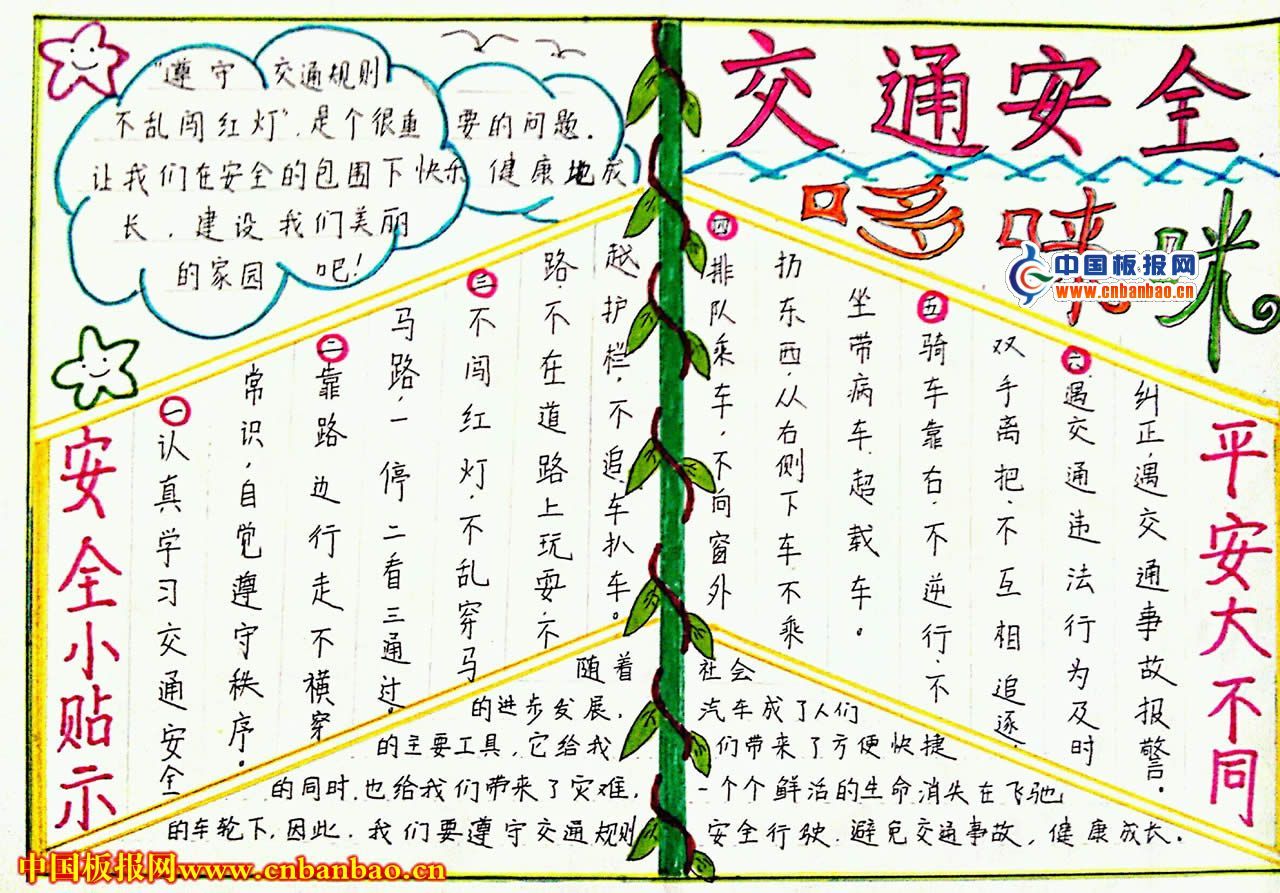 交通安全
哆 咪
中国板报网
www.cnbanbao.cn
“遵守 交通规则
不乱闯红灯”,是个很重 要的问题.
让我们在安全的包围下快乐 健康地成
长,建设我们美丽
的家园 吧!
安全小贴示
一 认真学习交通安全
常识,自觉遵守秩序。
二 靠路边行走不横穿
马路,一停二看三通过。
三 不闯红灯,不乱穿马
路,不在道路上玩耍,不
越护栏,不追车扒车。
四 排队乘车,不向窗外
扔东西,从右侧下车不乘
坐带病车,超载车。
五 骑车靠右,不逆行,不
双手离把,不互相追逐,
六 遇交通违法行为及时
纠正,遇交通事故报警。
平安大不同
随着 社会
的进步发展, 汽车成了人们
的主要工具,它给我 们带来了方便快捷
的同时,也给我们带来了灾难, 一个个鲜活的生命消失在飞驰
的车轮下,因此,我们要遵守交通规则 安全行驶,避免交通事故,健康成长。
中国板报网www.cnbanbao.cn